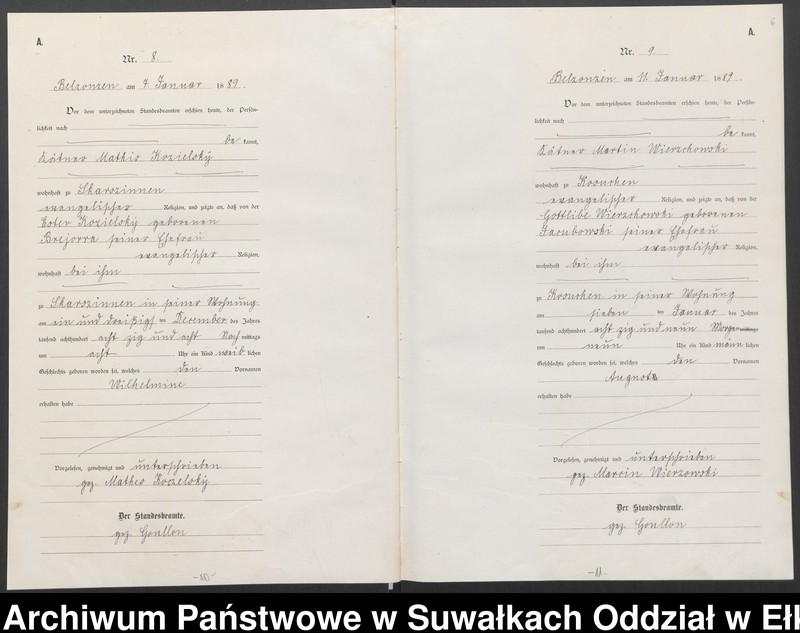 A.
Nr. 8.
Belzonzen am 7. Januar 1889.
Vor dem unterzeichneten Standesbeamten erschien heute, der Persön-
lichkeit nach
be kannt,
Kätner Mathis Kozielsky
wohnhaft zu Skarozinnen
evangelischer Religion, und zeigte an, daß von der
Ester Kozielsky geborenen
Brejorra seiner Ehefrau
evangelischer Religion,
wohnhaft bei ihm
zu Skarozinnen in seiner Wohnung
am ein und dreißigst ten December des Jahres
tausend achthundert acht zig und acht Nach mittags
um acht Uhr ein Kind weib lichen
Geschlechts geboren worden sei, welches den Vornamen
Wilhelmine
erhalten habe
Vorgelesen, genehmigt und unterschrieben
gez. Matheo Kozielsky
Der Standesbeamte.
gez. Goullon
-10-
6
A.
Nr. 9.
Belzonzen am 11. Januar 1889.
Vor dem unterzeichneten Standesbeamten erschien heute, der Persön-
lichkeit nach
be kannt,
Kätner Martin Wierzchowski
wohnhaft zu
evangelischer Religion, und zeigte an, daß von der
Gottliebe Wierzchowski geborenen
Jacubowski seiner Ehefrau
evangelischer Religion,
wohnhaft bei ihm
zu in seiner Wohnung
am sieben ten Januar des Jahres
tausend achthundert acht zig und neun Morgens
um neun Uhr ein Kind männ lichen
Geschlechts geboren worden sei, welches den Vornamen
August
erhalten habe
Vorgelesen, genehmigt und unterschrieben
gez. Marcin Wierzowski
Der Standesbeamte.
gez. Goullon
-11-
Archiwum Państwowe w Suwałkach Oddział w Ełk